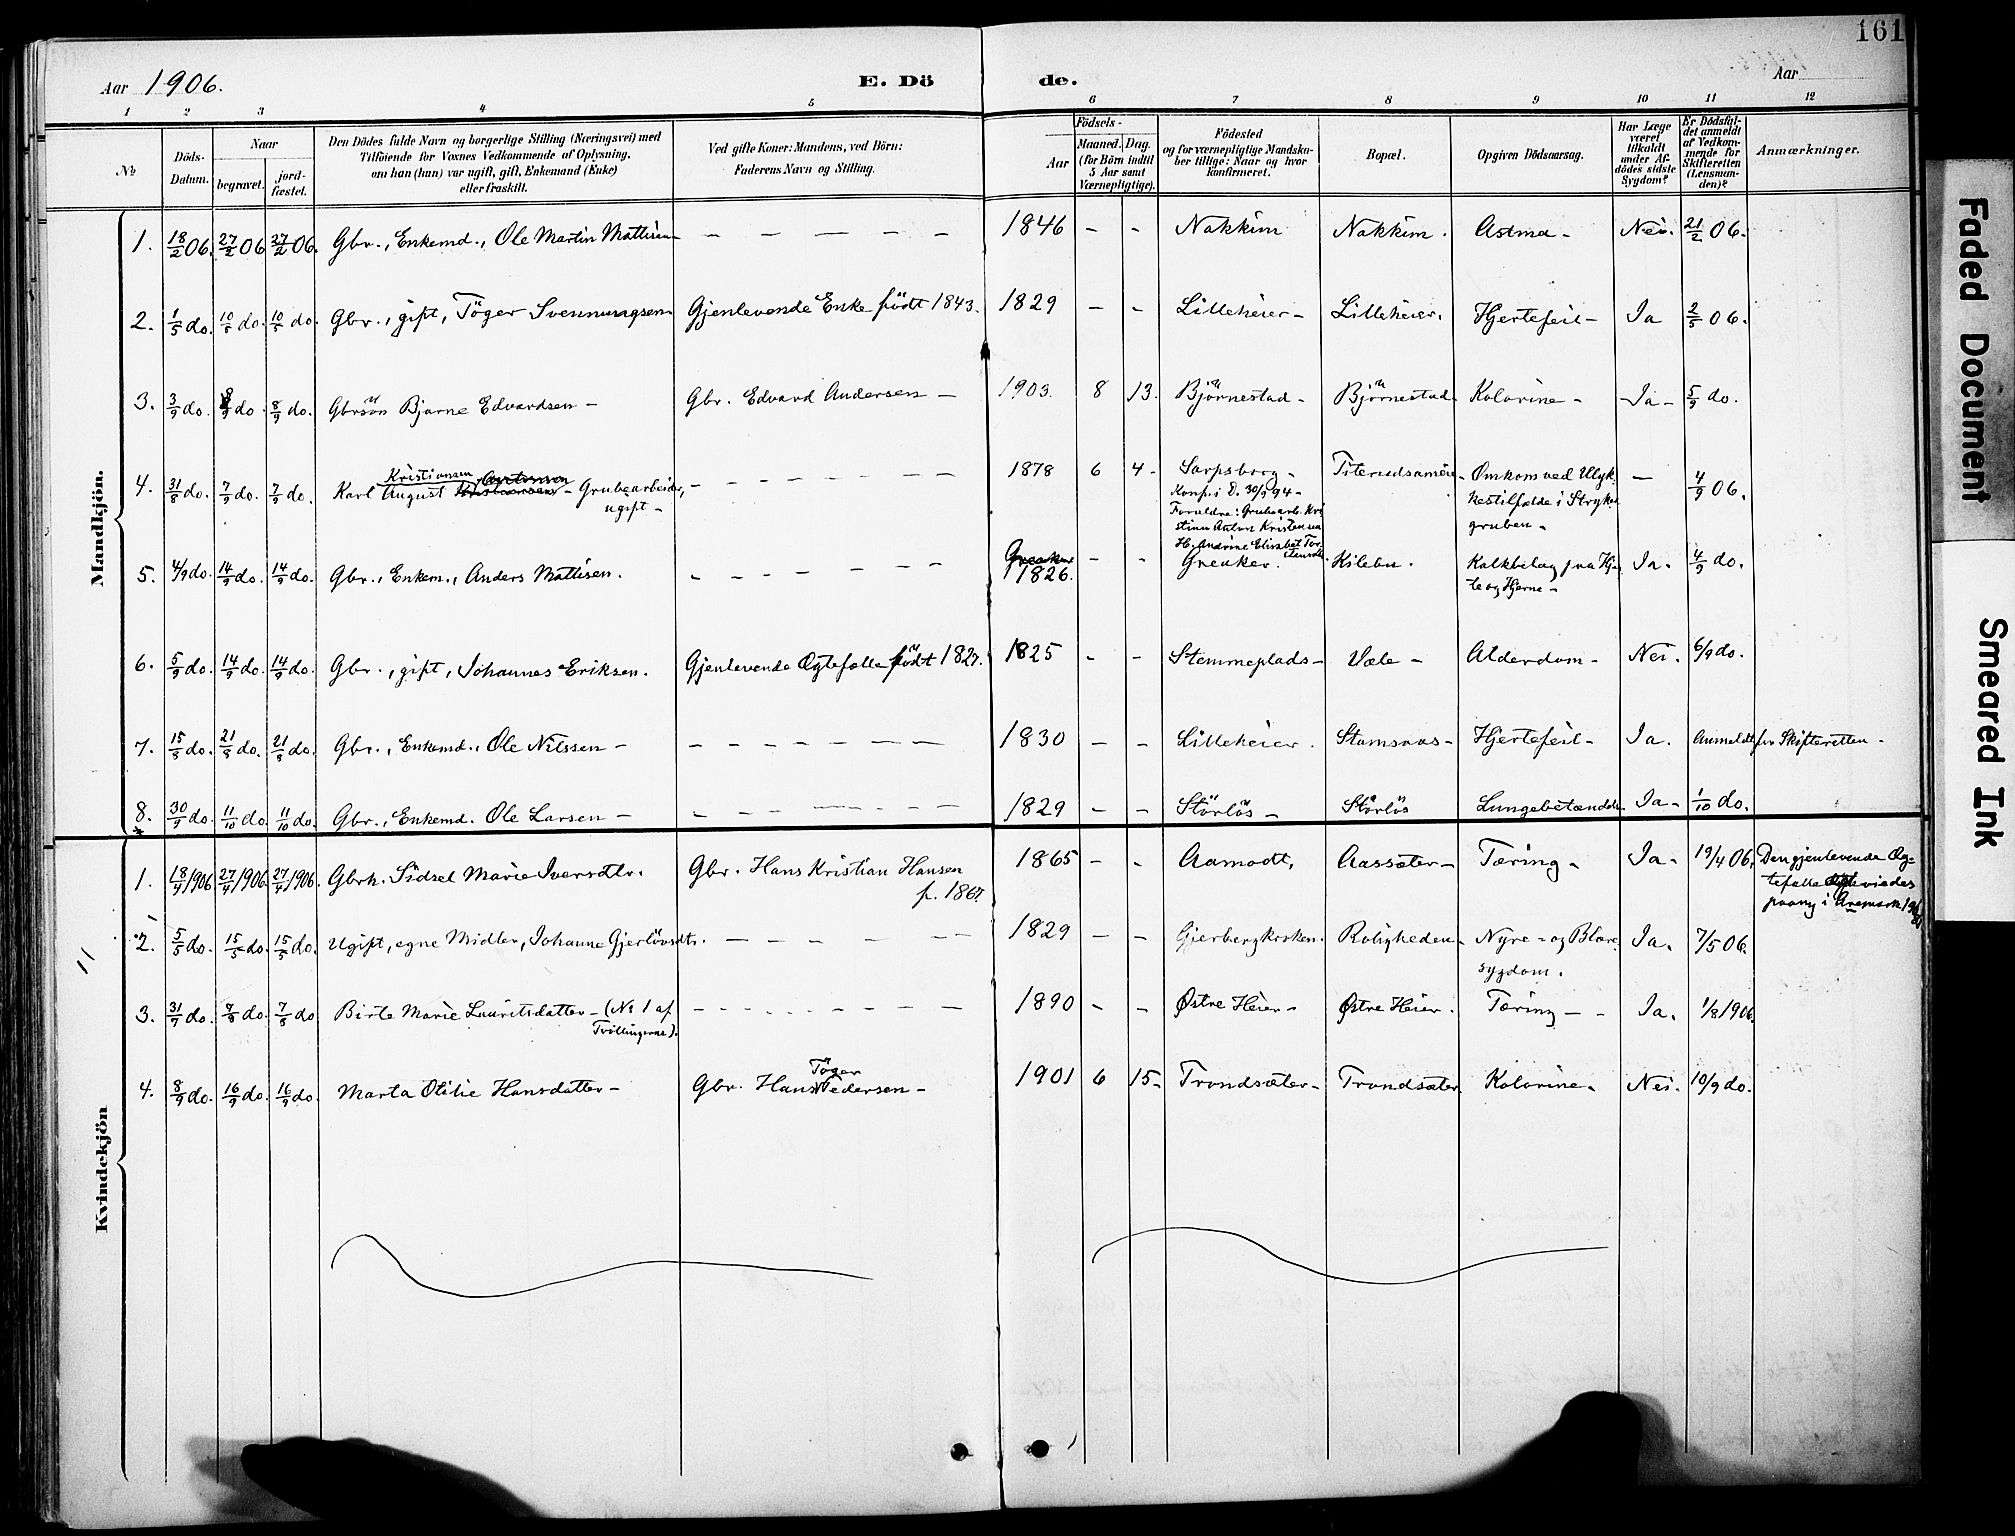 161
Aar 1906. E. Dö de. Aar
1 2 3 4 5 6 7 8 9 10 11 12
No
Döds-
Datum.
Naar
begravet.
jord-
fæstet.
Den Dödes fulde Navn og borgerlige Stilling (Næringsvei) med
Tilföiende for Voxnes Vedkommende af Oplysning,
om han (hun) var ugift, gift, Enkemand (Enke)
eller fraskilt.
Ved gifte Koner: Mandens, ved Börn:
Faderens Navn og Stilling.
Födsels-
Aar
Maaned. Dag.
(for Börn indtil
5 Aar samt
Værnepligtige).
Födested
og for værnepligtige Mandska-
ber tillige: Naar og hvor
konfirmeret.
Bopæl.
Opgiven Dödsaarsag.
Har Læge
været
tilkaldt
under Af-
dödes sidste
Sygdom?
Er Dödsfal-
det anmeldt
af Vedkom-
mende for
Skifteretten
(Lensman-
den)?
Anmærkninger.
Mandkjön.
1. 18/2 06. 27/2 06 27/2 06. Gbr., Enkemd., Ole Martin Mattisen — — — — — 1846 - - Nakkim Nakkim. Astma - Nei. 21/2 06.
2. 1/5 do. 10/5 do. 10/5 do. Gbr., gift, Töger Svennungsen Gjenlevende Enke födt 1843. 1829 - - Lilleheier - Lilleheier. Hjertefeil - Ja 2/5 06.
3. 3/9 do. 8/9 do. 8/9 do. Gbrsön Bjarne Edvardsen - Gbr. Edvard Andersen - 1903. 8 13. Björnestad - Björnestad Kolerine - Ja - 5/9 do.
4. 31/8 do. 7/9 do. 7/9 do. Karl August Kristiansen - Grubearbeider,
ugift -
- - - - - 1878 6 4 - Sarpsborg -
Konf. i 30/9 94 -
Forældre: Grubearb. Kri
stian Anton Kristensen
H. Andrine Elisabet Tor
Omkom ved Ulyk-
kestilfælde i
gruben -
— 4/9 06.
5. 4/9 do. 14/9 do. 14/9 do. Gbr., Enkem., Anders Mattisen. - - - - - Greaker 1826. - - Greaker. Kilebu. Kalkbelag paa Hjer
te og Hjerne - Ja. 4/9 do.
6. 5/9 do. 14/9 do. 14/9 do. Gbr., gift, Johannes Eriksen. Gjenlevende Ægtefælle födt 1827. 1825 - - Stemmeplads - Væle - Alderdom - Nei. 6/9 do.
7. 15/8 do. 21/8 do. 21/8 do. Gbr., Enkemd., Ole Nilssen - - - - - - 1830 - - Lilleheier. Stamsaas - Hjertefeil - Ja. Anmeldt for Skifteretten -
8. 30/9 do. 11/10 do. 11/10 do. Gbr., Enkemd. Ole Larsen - - - - - - 1829 - - Störlös - Störlös Lungebetændels. Ja - 1/10 do.
Kvindekjön
1. 18/4 1906 27/4 1906 27/4 1906. Gbrk. Sidsel Marie Iversdtr. Gbr. Hans Kristian Hansen
f. 1867. 1865 - - Aamodt, Aassæter - Tæring - Ja - 19/4 06. Den gjenlevende Æg-
tefælle viedes
paany i Aremark
2. 5/5 do. 15/5 do. 15/5 do. Ugift, egne Midler, Johanne Gjerlövsdtr. - - - - - 1829 - - Gjerbergkroken. Roligheden - Nyre - og Blære
sygdom. Ja. 7/5 06.
3. 31/7 do. 7/8 do. 7/8 do Birte Marie Lauritsdatter - (No 1 af
Tvillingerne). - - - - - 1890 - - Østre Heier - Østre Heier. Tæring - - Ja. 1/8 1906.
4. 8/9 do. 16/9 do. 16/9 do. Marta Otilie Hansdatter - Gbr. Hans Töger Pedersen - 1901 6 15 - Trondsæter - Trondsæter Kolerine - Nei. 10/9 do.
Faded Document
Smeared Ink